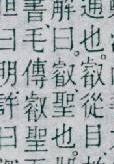 通也。叡從目
解曰。叡聖也。
書毛傳叡聖
曰明許曰